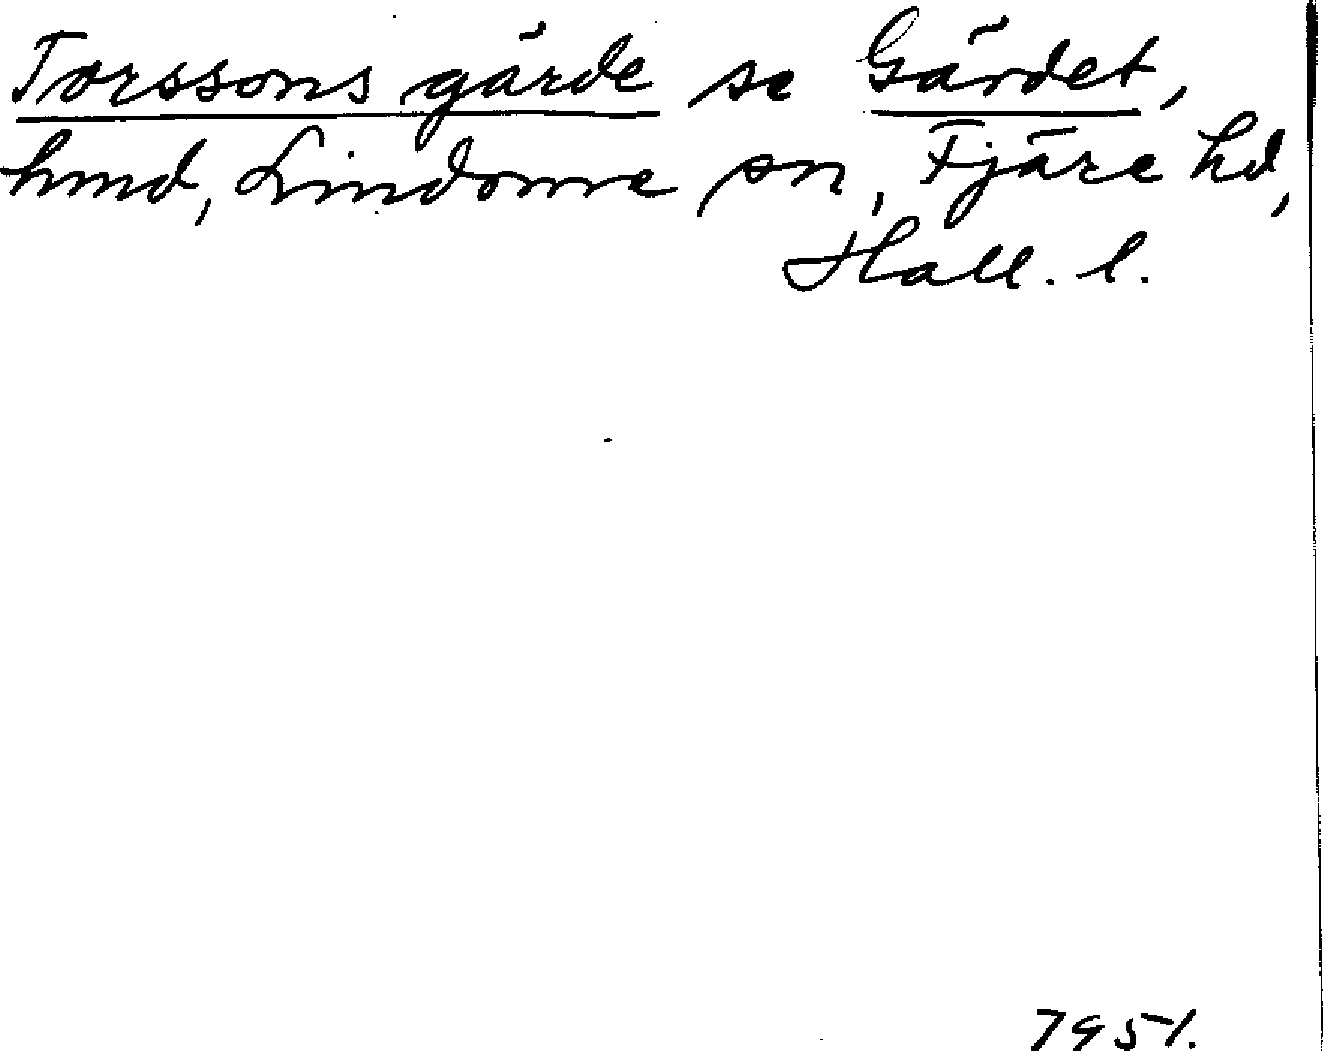 Torssons gärde se Gärdet,
hmd, Lindome sn, Fjäre hd,
Hall. l.
7951.